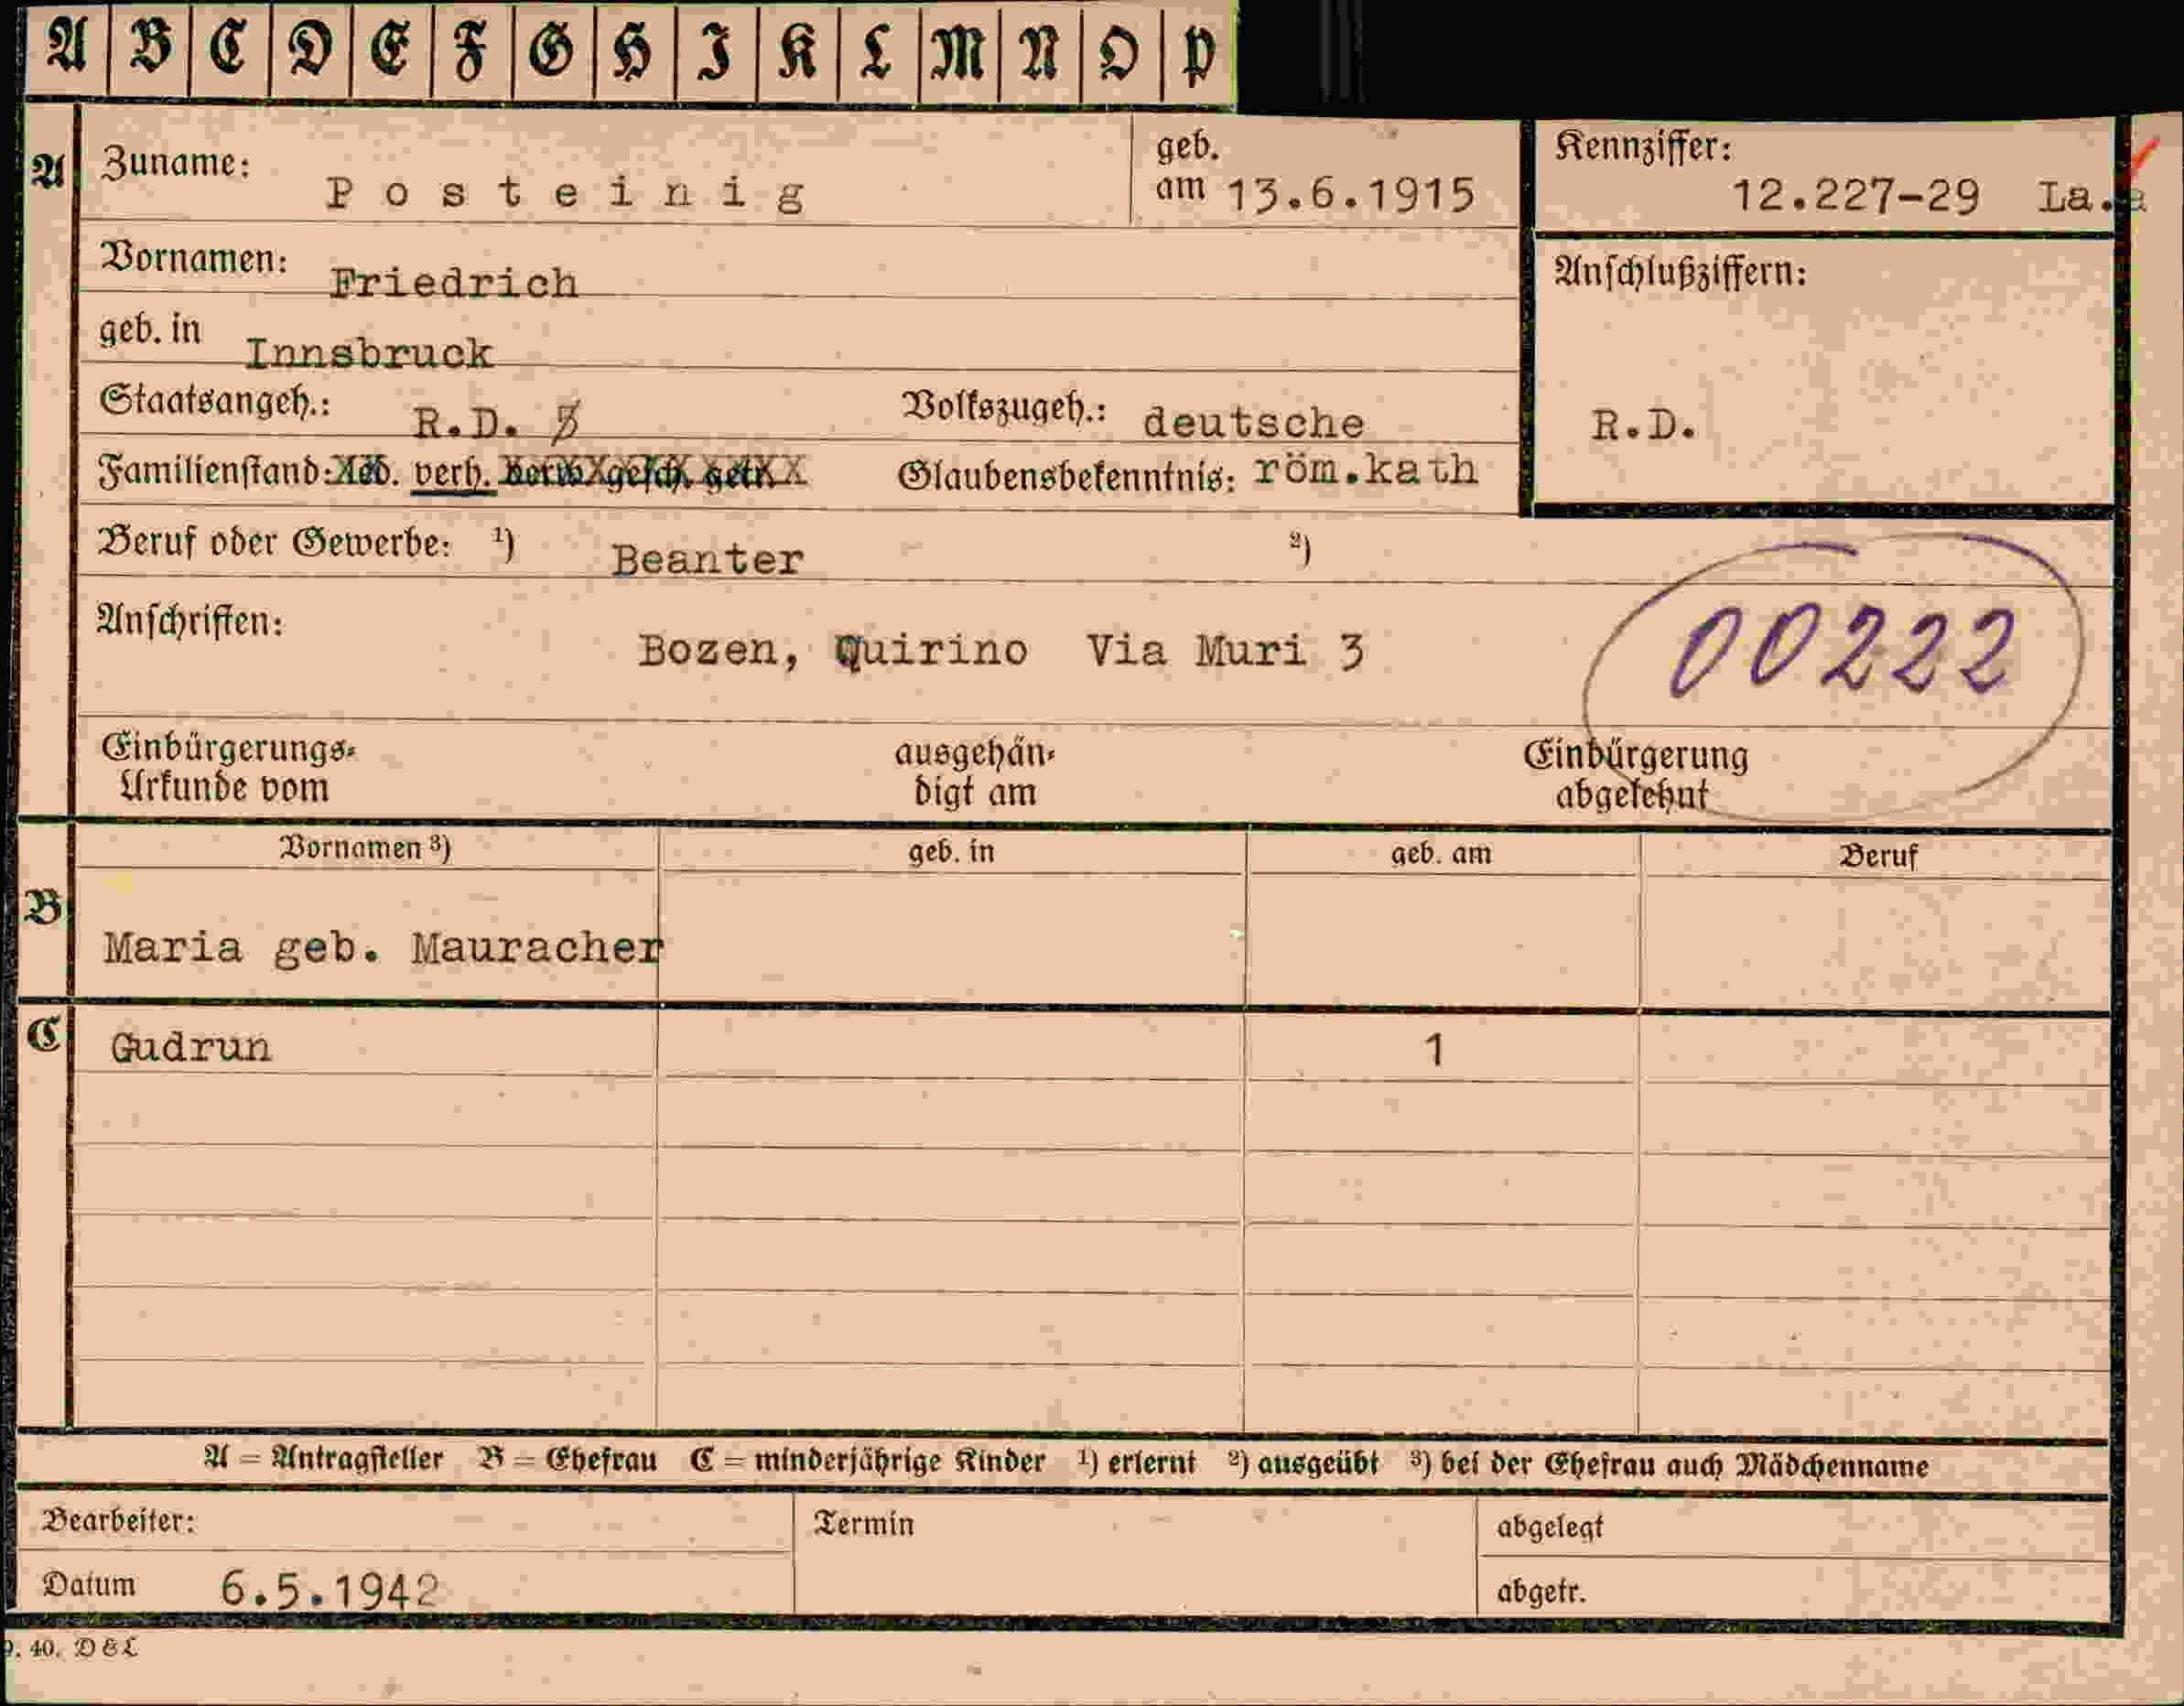 A B C D E F G H I K L M N O P
A Zuname: Posteinig geb. am 13.6.1915 Kennziffer: 12.227-29 La.a
Vornamen: Friedrich Anschlußziffern:
geb. in Innsbruck
Staatsangeh.: R.D. Volkszugeh.: deutsche R.D.
Familienstand: led. verh. verw. gesch. getr. Glaubensbekenntnis: röm.kath
Beruf oder Gewerbe: 1) Beanter 2)
Anschriften: Bozen, Quirino Via Muri 3 00222
Einbürgerungs-Urkunde vom ausgehän-digt am Einbürgerung abgelehnt
Vornamen 3) geb. in geb. am Beruf
B Maria geb. Mauracher
C Gudrun 1
A = Antragsteller B = Ehefrau C = minderjährige Kinder 1) erlernt 2) ausgeübt 3) bei der Ehefrau auch Mädchenname
Bearbeiter: Termin abgelegt
Datum 6.5.1942 abgetr.
9. 40. D & L